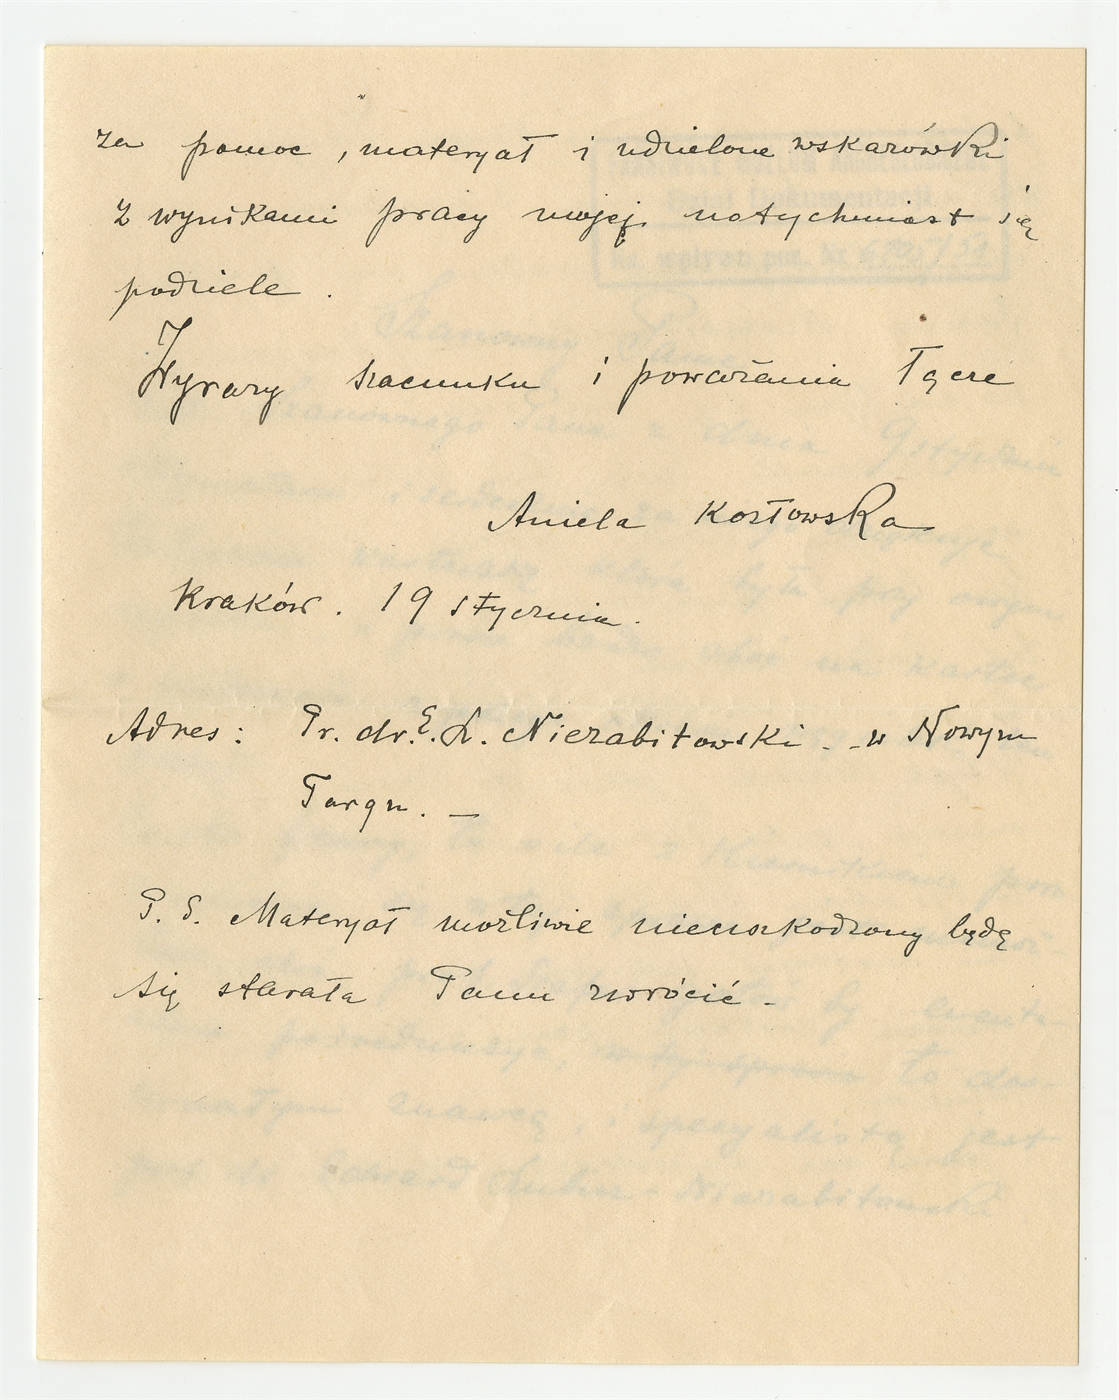 za pomoc, materyał i udzielone wskazówki
z wynikami pracy mojej natychmiast się
podziele.
Wyrazy szacunku i poważania łącze
Aniela Kozłowska
Kraków. 19 stycznia.
Adres: Pr. dr. E. L. Niezabitowski - w Nowym
Targu. —
P. S. Materyał możliwie nieuszkodzony będę
się starała Panu zwrócić -